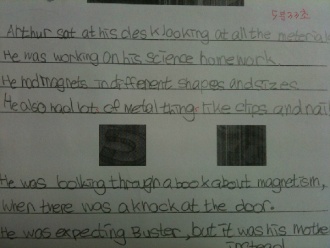 Arthur sat at his desk looking at all the material
He was working on his science homework
He had magnets in different shapes and sizes
He also had lot of metal thing like clips and nail
He was looking through a book about magnetism,
when there was a knock at the door.
He was expecting Buster, but it was his Mothe
instead